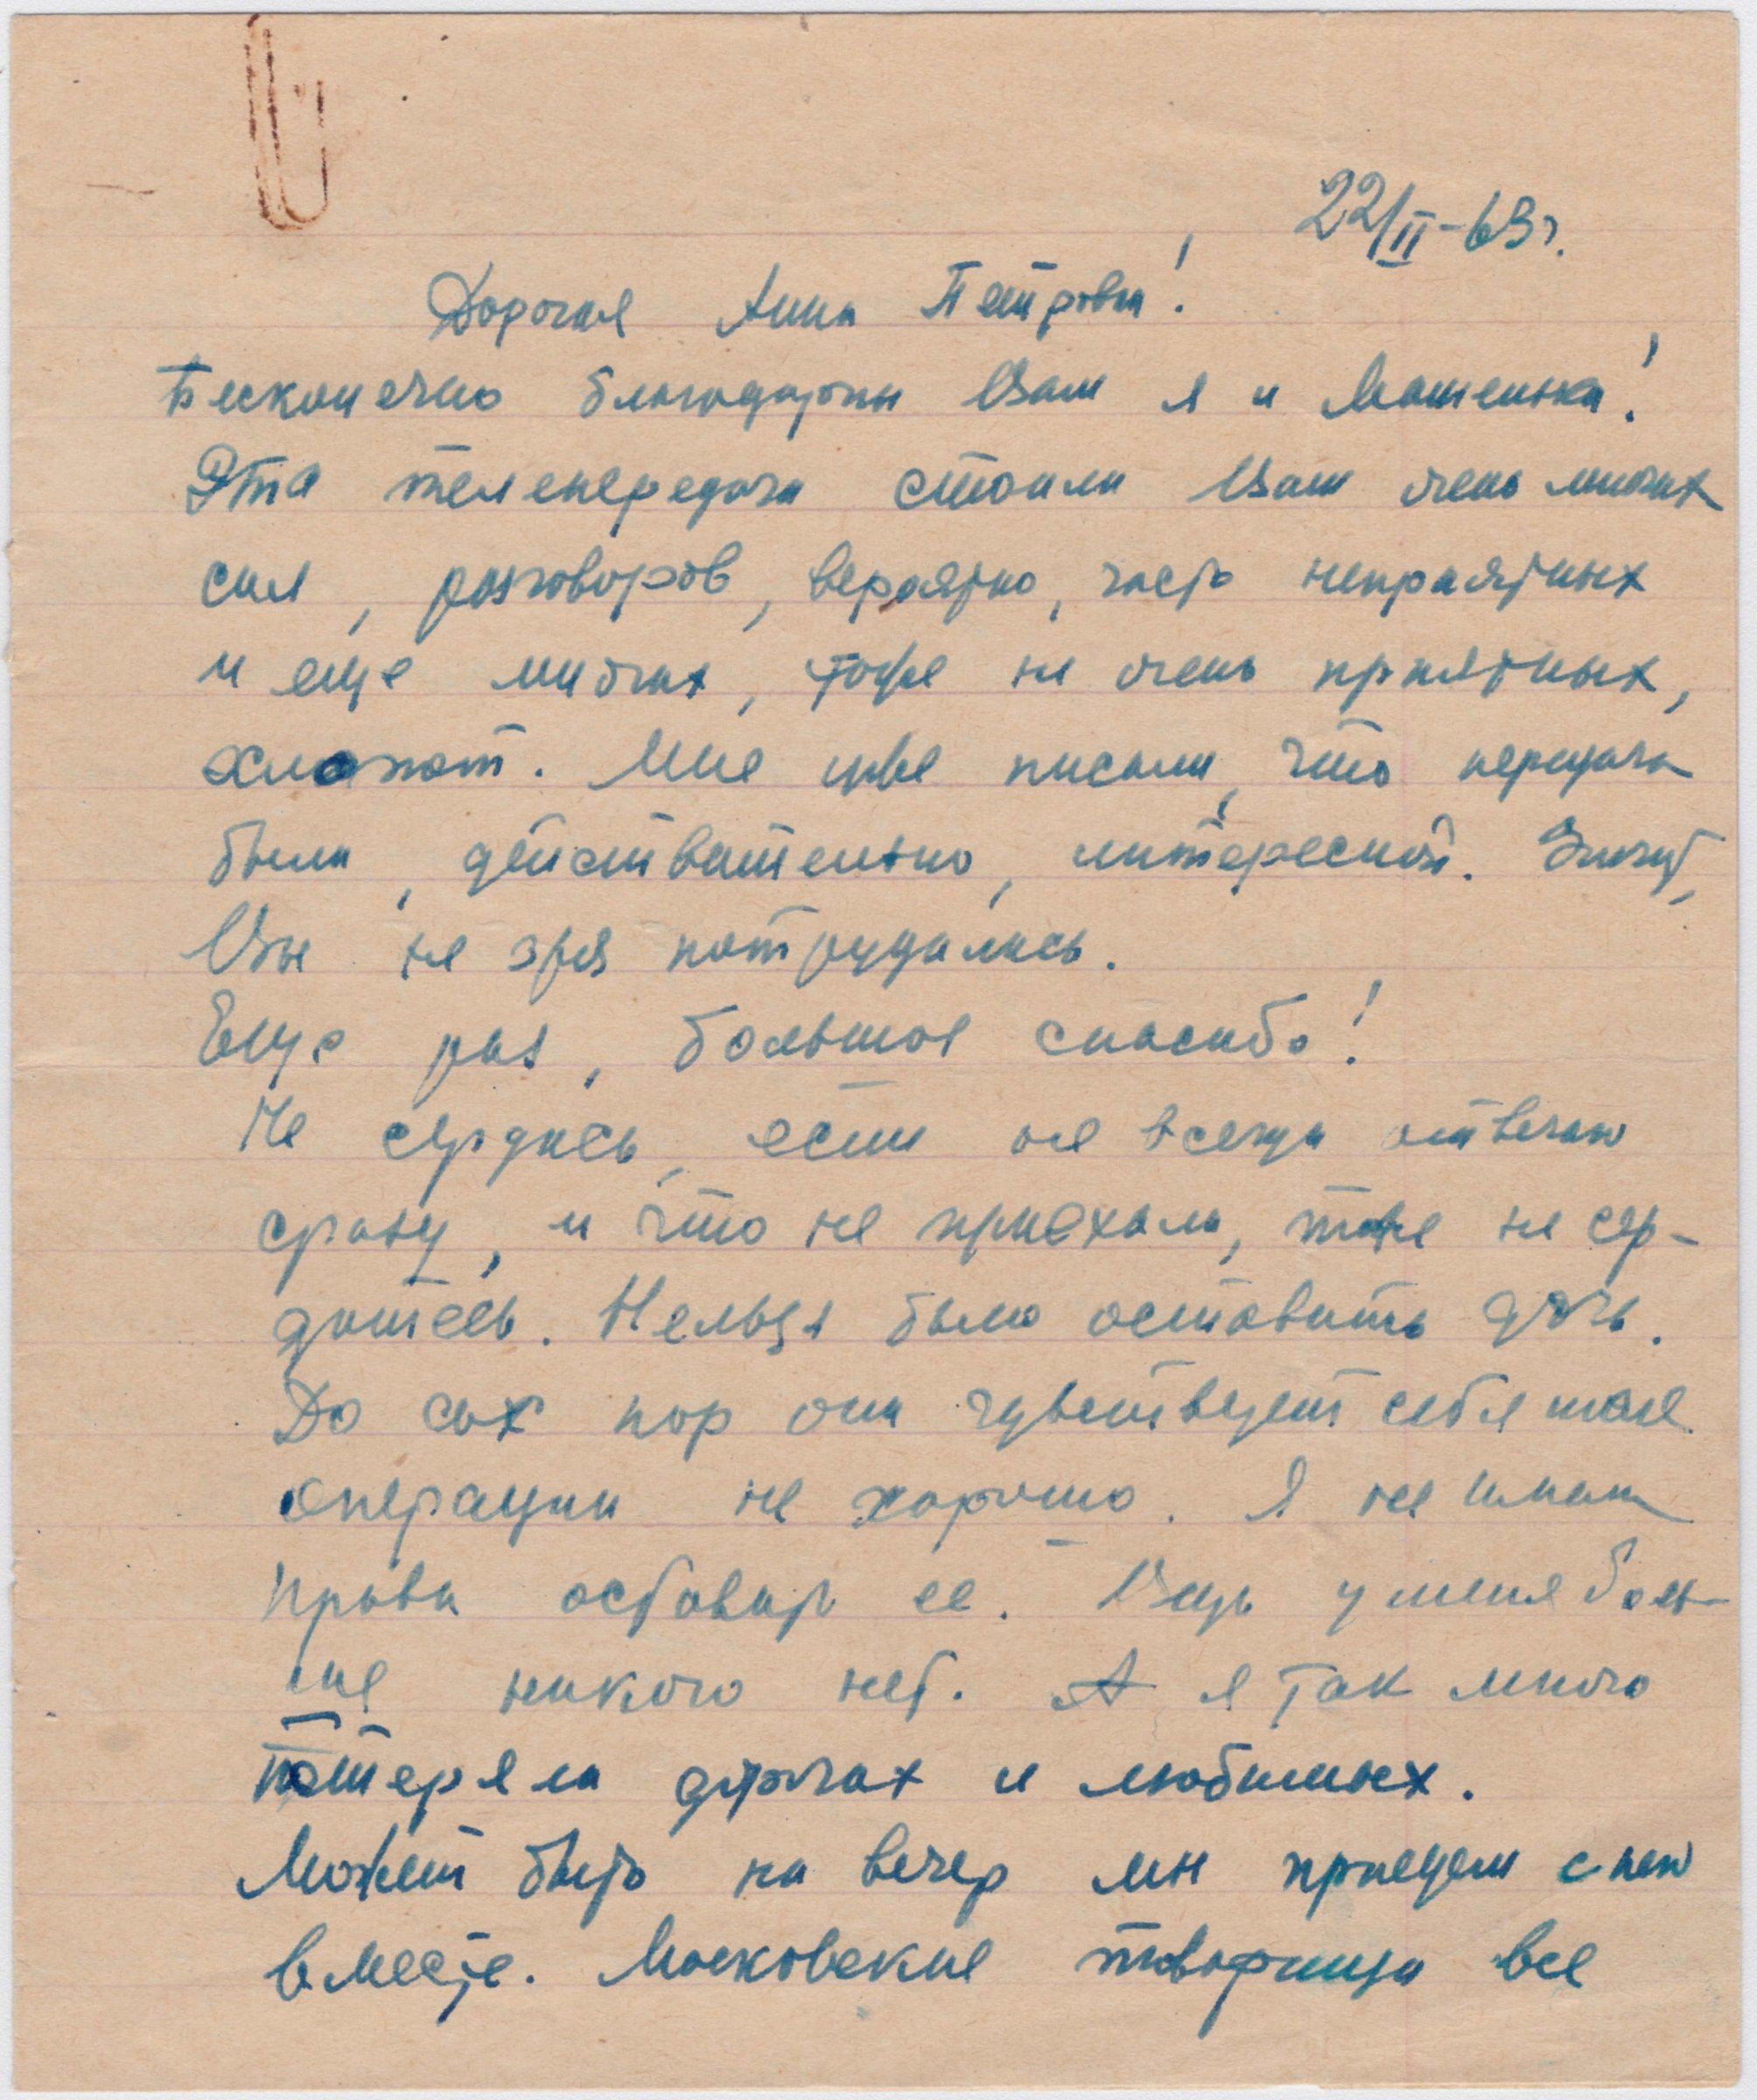 22/II-63г.
Дорогая Анна Петровна!
Бесконечно благодарны Вам я и Машенька!
Эта телепередача стоила Вам очень многих
сил, разговоров, вероятно, часто неприятных
и еще многих, тоже не очень приятных,
хлопот. Мне уже писали, что передача
была, действительно, интересной. Значит,
Вы не зря потрудились.
Еще раз, большое спасибо!
Не сердись, если не всегда отвечаю
сразу, и что не приехала, тоже не сер-
дитесь. Нельзя было оставить дочь.
До сих пор она чувствует себя после
операции не хорошо. Я не имею
права оставить ее. Ведь у меня боль-
ше никого нет. А я так много
потеряла дорогих и любимых.
Может быть на вечер мы приедем с нею
вместе. Московские товарищи все